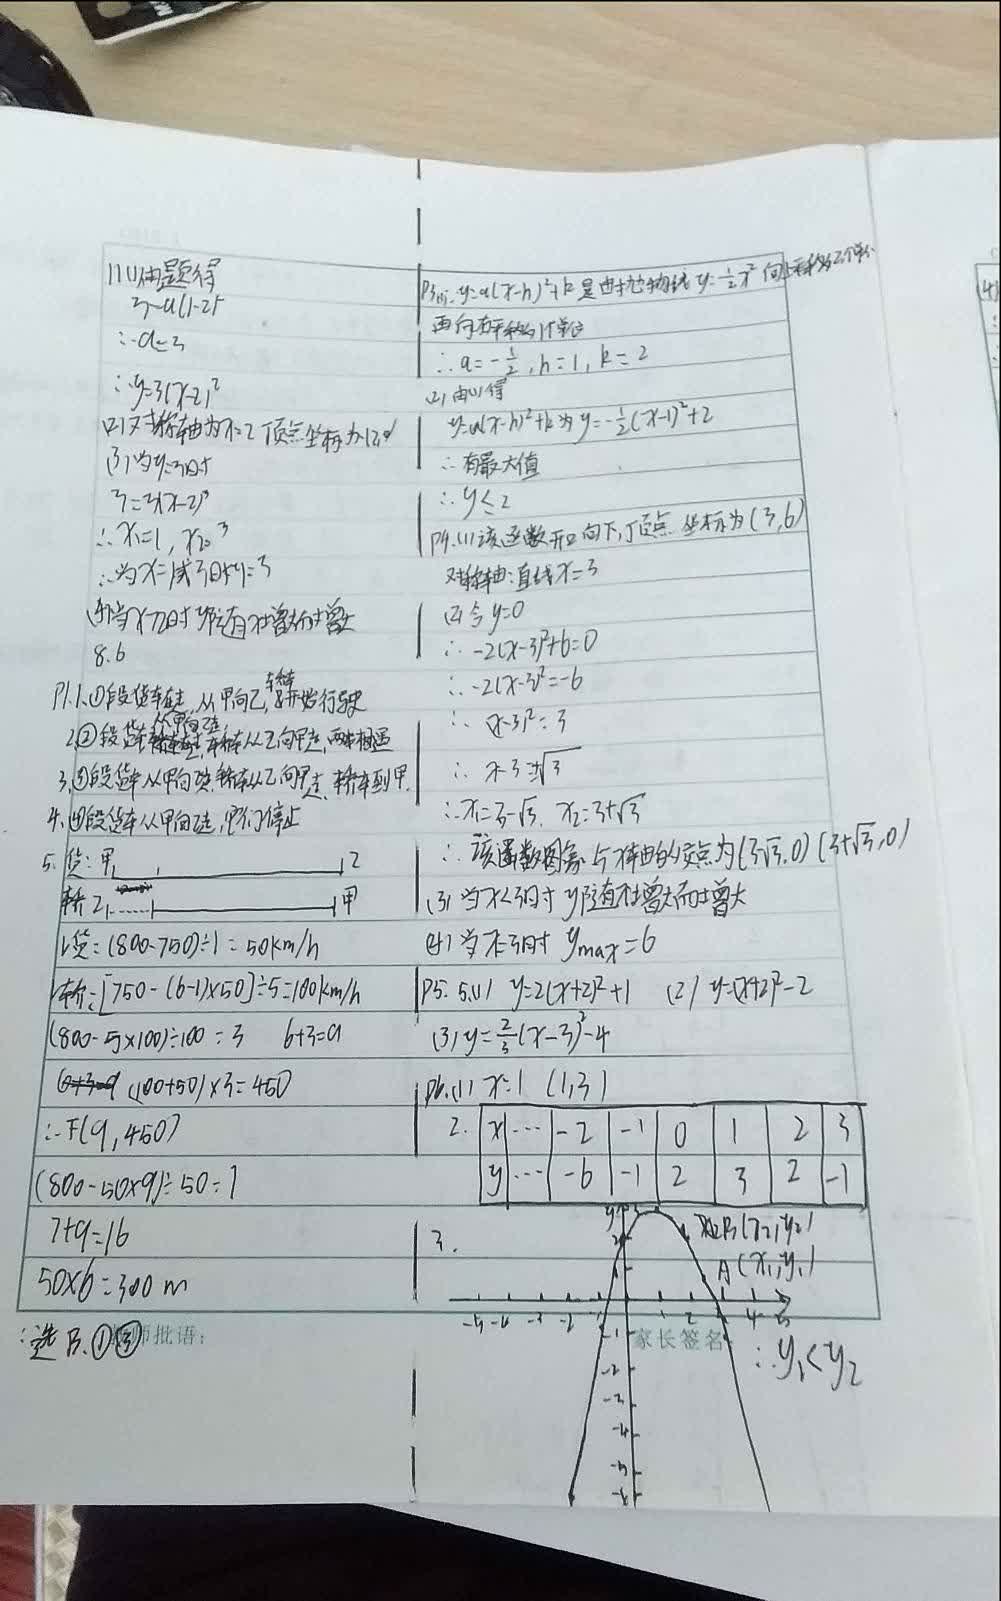 11.(1)由题得
3=a(1-2)²
∴a=3
∴y=3(x-2)²
(2)对称轴为x=2 顶点坐标为(2,0)
(3)当y=3时
3=3(x-2)²
∴x₁=1, x₂=3
∴当x=1或3时y=3
(4)当x>2时 y随着x增大而增大
8.6
P1.1.①段货车先走,从甲向乙,轿车8开始行驶
2.②段货车从甲向乙走,轿车从乙向甲走,两车相遇
3.③段货车从甲向乙走,轿车从乙向甲走,轿车到甲.
4.④段货车从甲向乙走,它们停止
5.货:甲 乙
轿乙 甲
V货:(800-750)÷1=50km/h
V轿:[750-(6-1)×50]÷5=100km/h
(800-5×100)÷100=3 6+3=9
(100+50)×3=450
∴F(9,450)
(800-50×9)÷50=7
7+9=16
50×6=300m
∴选B.①③
师批语:
P3.(1)∵y=a(x-h)²+k是由抛物线y=-½x²向上平移2个单位
再向右平移1个单位
∴a=-½,h=1,k=2
(2)由(1)得
y=a(x-h)²+k为y=-½(x-1)²+2
∴有最大值
∴y≤2
P4.(1)该函数开口向下,顶点坐标为(3,6)
对称轴:直线x=3
(2)令y=0
∴-2(x-3)²+6=0
∴-2(x-3)²=-6
∴(x-3)²=3
∴x-3=±√3
∴x₁=3-√3, x₂=3+√3
∴该函数图象与x轴的交点为(3-√3,0)(3+√3,0)
(3)当x<3时 y随着x增大而增大
(4)当x=3时 ymax=6
P5.5.(1) y=2(x+2)²+1 (2) y=(x+2)²-2
(3)y=⅔(x-3)²-4
P6.(1) x=1 (1,3)
2. x … -2 -1 0 1 2 3
y … -6 -1 2 3 2 -1
3.
B(x₂,y₂)
A(x₁,y₁)
家长签名:
∴y₁<y₂